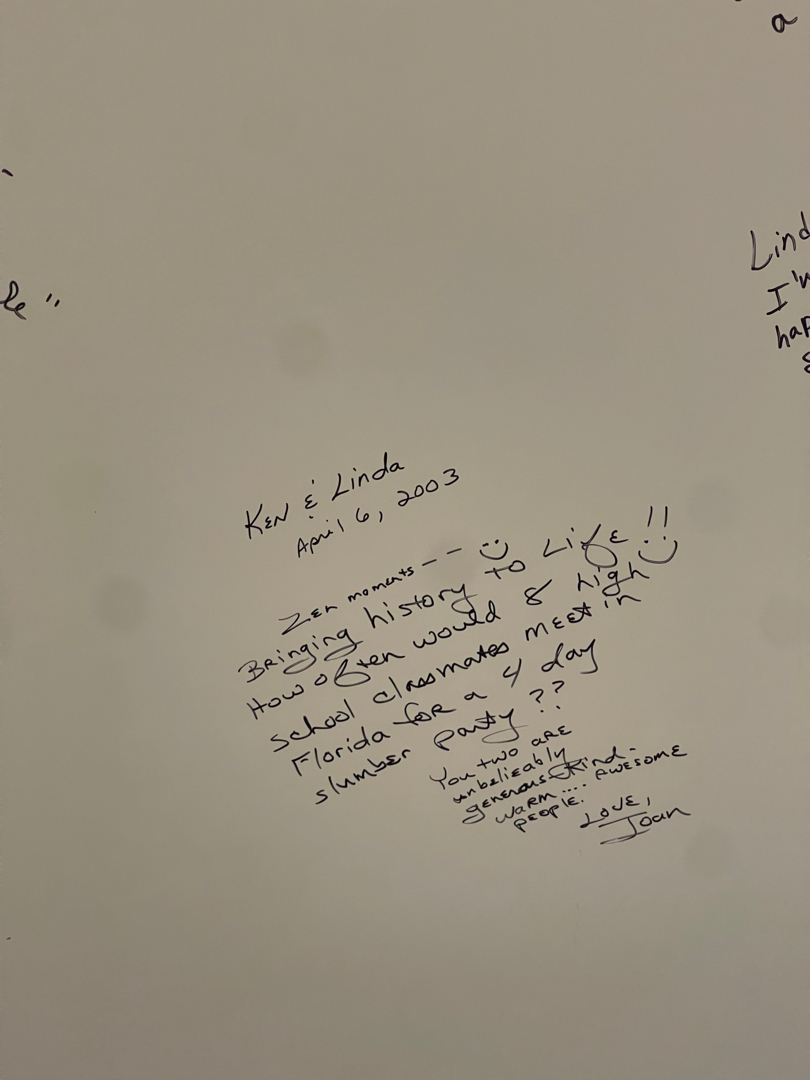 a
Ken & Linda
April 6, 2003
Zen moments - - :)
Bringing history to Life !!
How often would 8 high
school classmates meet in
Florida for a 4 day
slumber party ??
You two are
unbelieably
generous - kind -
warm .... awesome
people.
Love,
Joan
Lind
I'm
hap